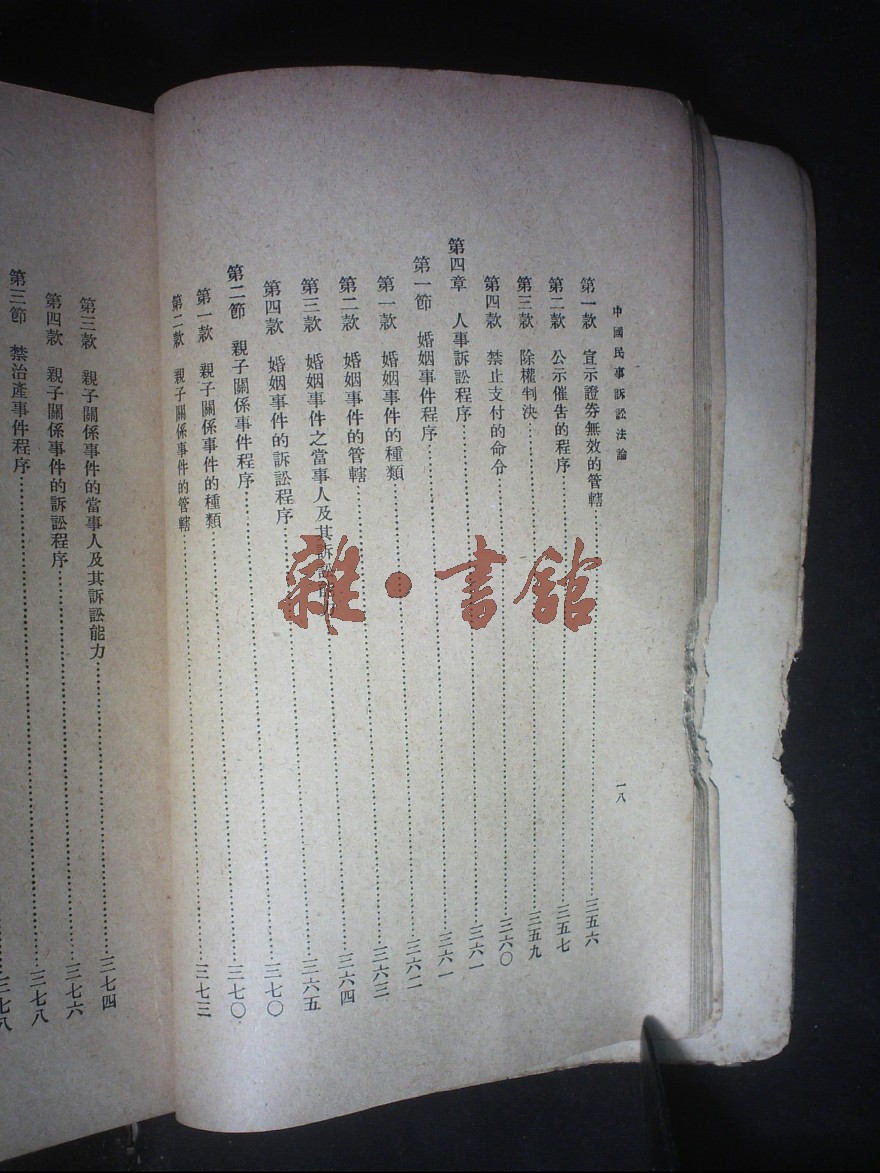 中國民事訴訟法論
一八
第一款 宣示證券無效的管轄……三五六
第二款 公示催告的程序……三五七
第三款 除權判決……三五九
第四款 禁止支付的命令……三六〇
第四章 人事訴訟程序……三六一
第一節 婚姻事件程序……三六一
第一款 婚姻事件的種類……三六二
第二款 婚姻事件的管轄……三六三
第三款 婚姻事件之當事人及其訴訟能力……三六四
第四款 婚姻事件的訴訟程序……三六五
第二節 親子關係事件程序……三七〇
第一款 親子關係事件的種類……三七〇
第二款 親子關係事件的管轄……三七三
第三款 親子關係事件的當事人及其訴訟能力……三七四
第四款 親子關係事件的訴訟程序……三七六
第三節 禁治產事件程序……三七八
雜·書館